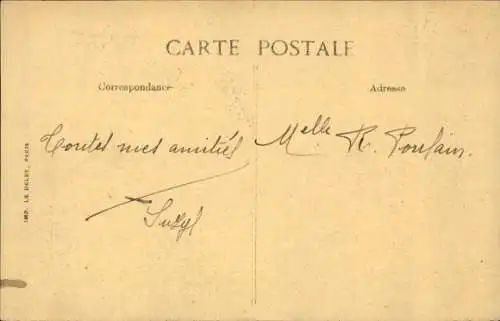 CARTE POSTALE
Correspondance
Adresse
Toutes mes amitiés
Suzyl
Melle R. Poulain.
IMP. LE DELEY, PARIS